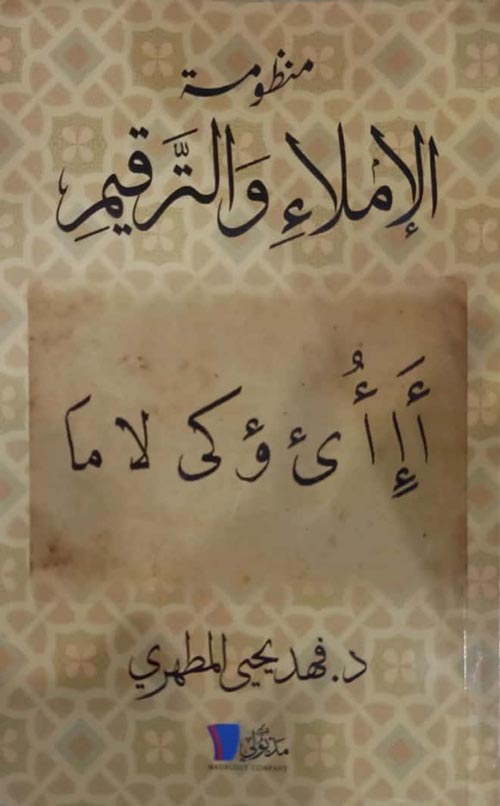 منظومة
الإملاءِ وَالتَّرقيمِ
أَ إِ أُ ئ ؤ كى لا ما
د. فهد يحيى المطهري
مدبولي
MADBOULY COMPANY